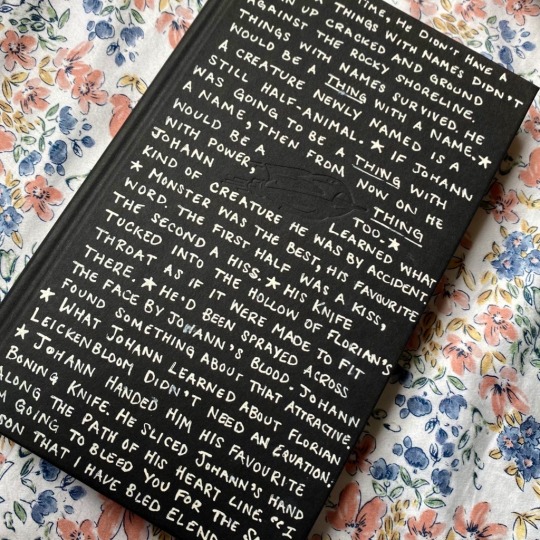 TIME, HE DIDN'T HAVE A
THINGS WITH NAMES DIDN'T
UP CRACKED AND GROUND
AGAINST THE ROCKY SHORELINE.
THINGS WITH NAMES SURVIVED. HE
WOULD BE A THING WITH A NAME. ★
A CREATURE NEWLY NAMED IS A
STILL HALF-ANIMAL. ★ IF JOHANN
WAS GOING TO BE A THING WITH
A NAME, THEN FROM NOW ON HE
WOULD BE A THING
WITH POWER, TOO. ★
JOHANN LEARNED WHAT
KIND OF CREATURE HE WAS BY ACCIDENT.
★ MONSTER WAS THE BEST, HIS FAVOURITE
WORD. THE FIRST HALF WAS A KISS,
THE SECOND A HISS. ★ HIS KNIFE
TUCKED INTO THE HOLLOW OF FLORIAN'S
THROAT AS IF IT WERE MADE TO FIT
THERE. ★ HE'D BEEN SPRAYED ACROSS
THE FACE BY JOHANN'S BLOOD. JOHANN
FOUND SOMETHING ABOUT THAT ATTRACTIVE.
★ WHAT JOHANN LEARNED ABOUT FLORIAN
LEICKENBLOOM DIDN'T NEED AN EQUATION.
★ JOHANN HANDED HIM HIS FAVOURITE
BONING KNIFE. HE SLICED JOHANN'S HAND
ALONG THE PATH OF HIS HEART LINE. "I
GOING TO BLEED YOU FOR THE
THAT I HAVE BLED